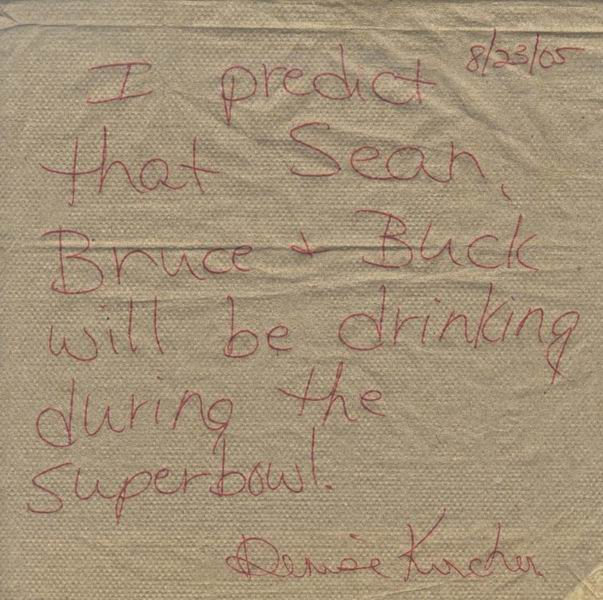 8/23/05
I predict
that Sean,
Bruce + Buck
will be drinking
during the
superbowl.
Denise Kircher